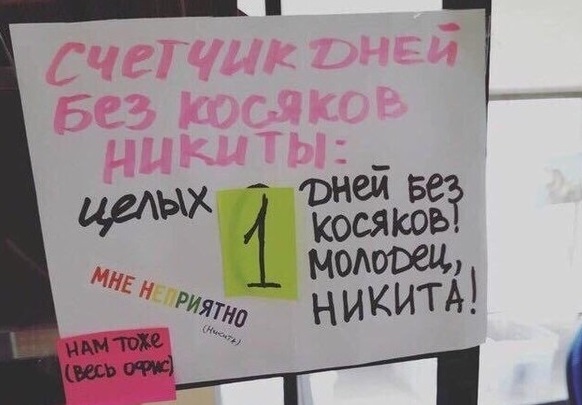 СЧЕТЧИК ДНЕЙ
БЕЗ КОСЯКОВ
НИКИТЫ:
целых 1 ДНЕЙ БЕЗ
КОСЯКОВ!
МОЛОДЕЦ,
НИКИТА!
МНЕ НЕПРИЯТНО
(Никита)
НАМ ТОЖЕ
(ВЕСЬ ОФИС)